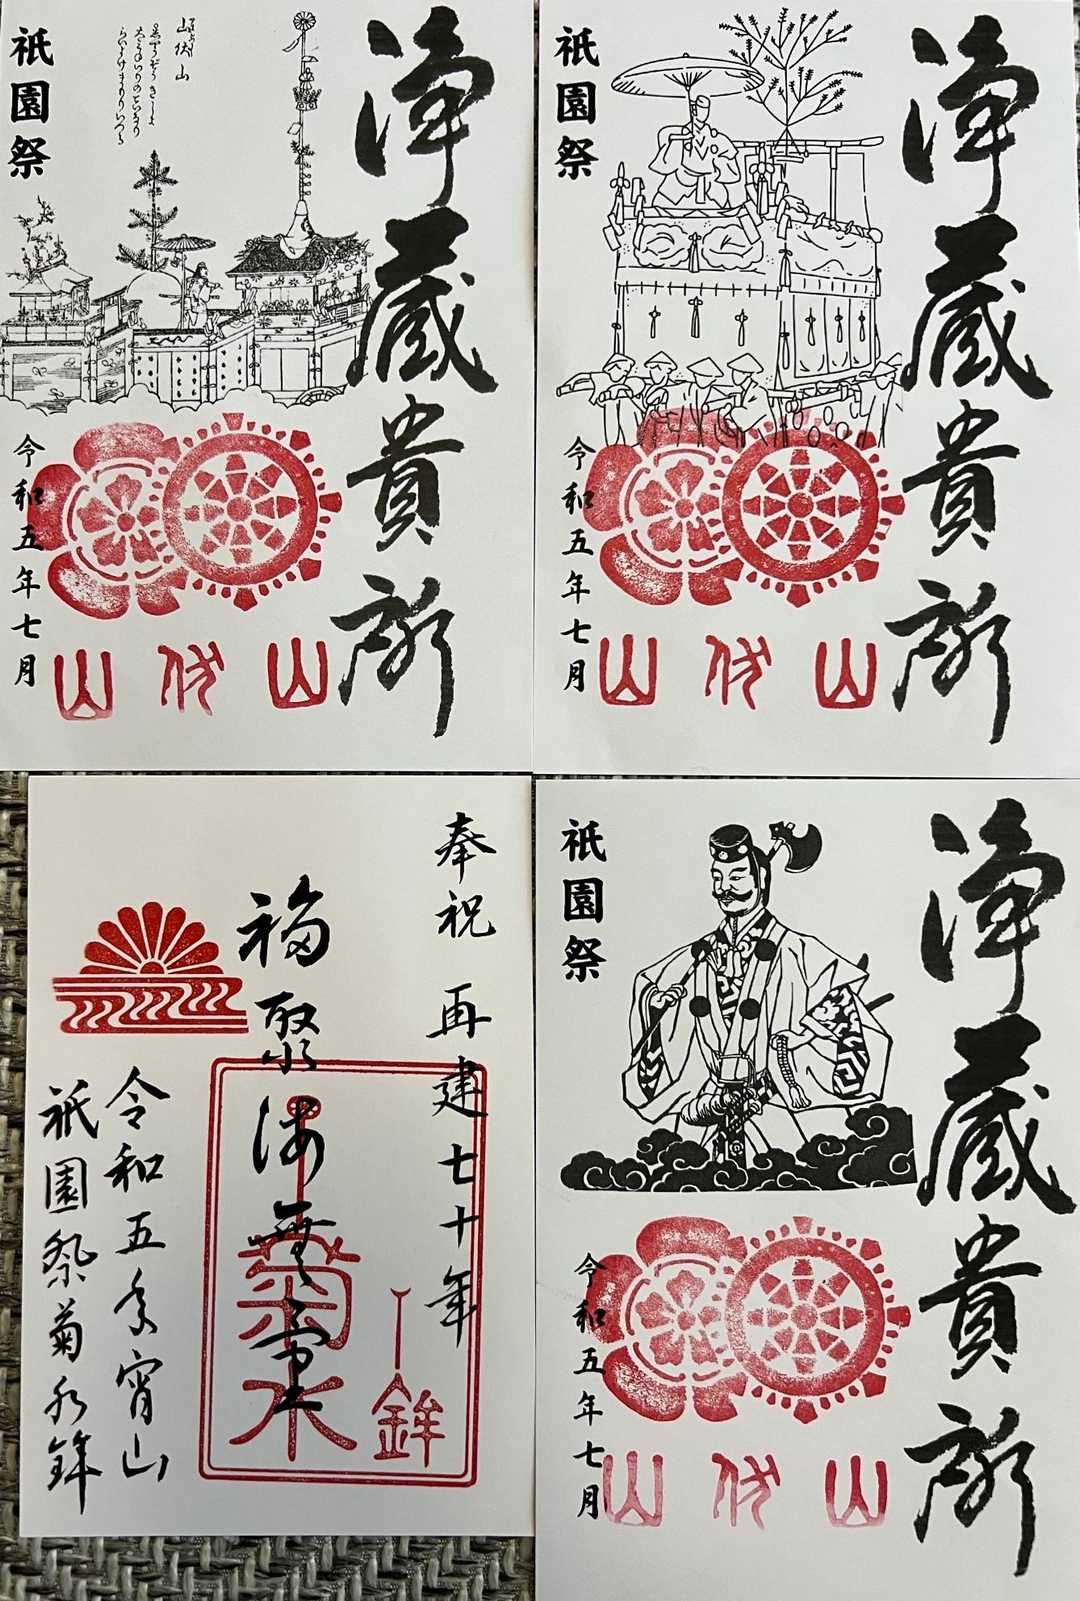 浄蔵貴所
祇園祭
令和五年七月
山伏山
山伏山
浄蔵貴所
祇園祭
令和五年七月
山伏山
奉祝 再建七十年
福聚海無量
令和五年宵山
祇園祭菊水鉾
菊水
鉾
浄蔵貴所
祇園祭
令和五年七月
山伏山